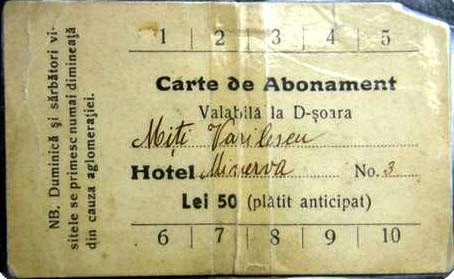 1 | 2 | 3 | 4 | 5
Carte de Abonament
Valabilă la D-șoara
Miți Vasilescu
Hotel Minerva No. 3
Lei 50 (plătit anticipat)
6 | 7 | 8 | 9 | 10
NB. Duminică și sărbători vi-
sitele se primesc numai dimineață
din cauza aglomerației.